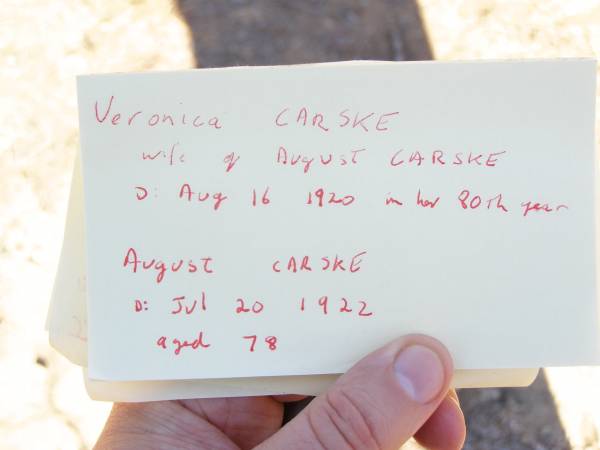 Veronica CARSKE
wife of August CARSKE
D: Aug 16 1920 in her 80th year
August CARSKE
D: Jul 20 1922
aged 78